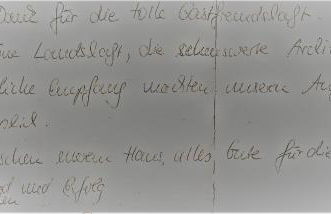 Dank für die tolle Gastfreundschaft.
Landschaft, die sehenswerte
liche Empfang machten unseren
schen eurem Haus, alles Gute für die
und Erfolg